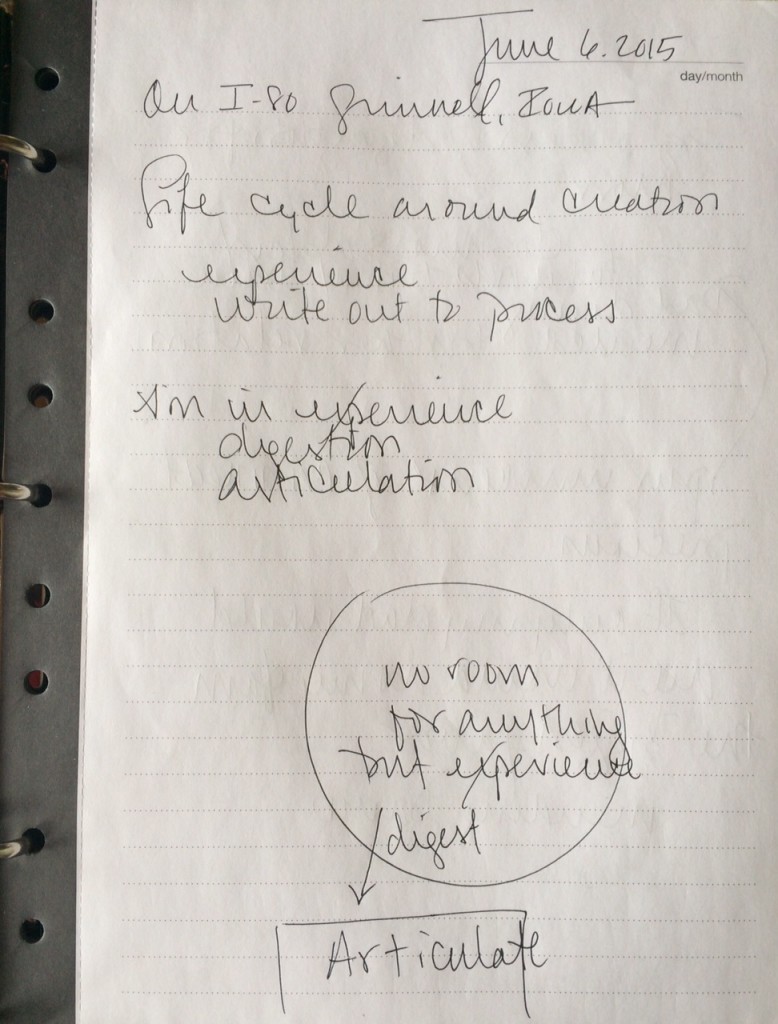 June 6. 2015
day/month
On I-80 Grinnell, Iowa
Life cycle around creation
experience
write out to process
in experience
digestion
articulation
no room
for anything
but experience
/digest
Articulate